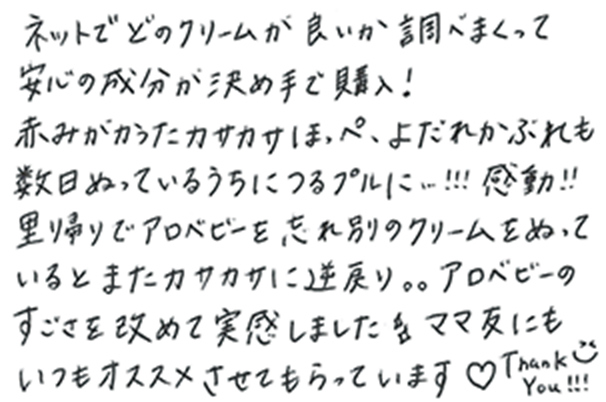 ネットでどのクリームが良いか調べまくって
安心の成分が決め手で購入!
赤みがかったカサカサほっぺ、よだれかぶれも
数日ぬっているうちにつるプルに…!!! 感動!!
里帰りでアロベビーを忘れ別のクリームをぬって
いるとまたカサカサに逆戻り。。アロベビーの
すごさを改めて実感しました ママ友にも
いつもオススメさせてもらっています♡ Thank
You!!!